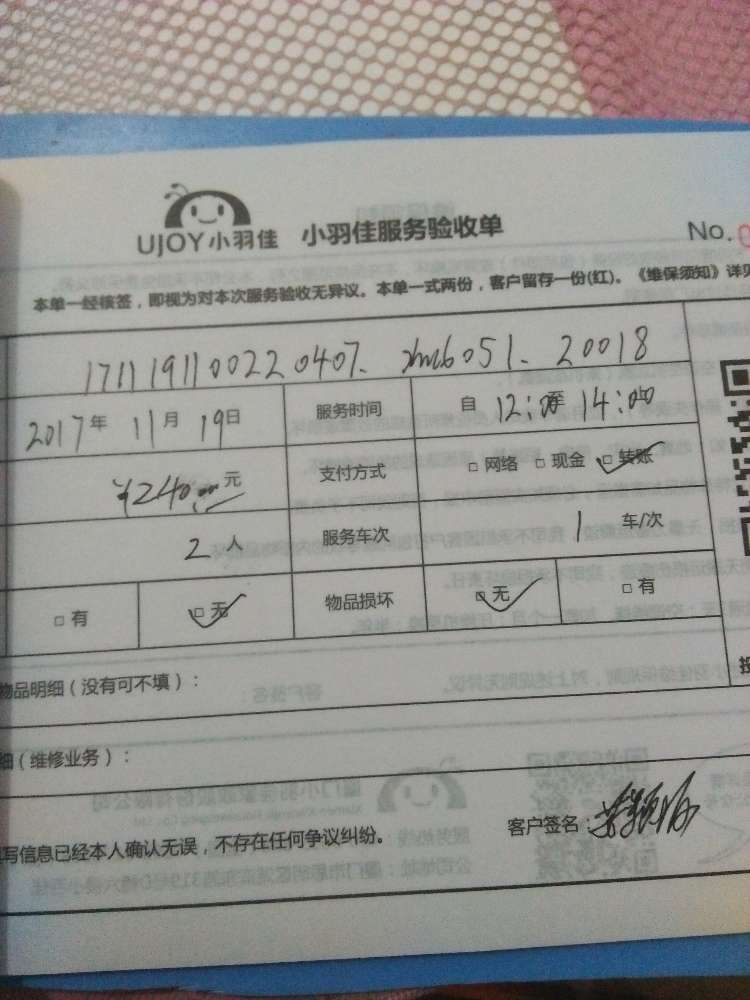 UJOY小羽佳 小羽佳服务验收单 No.
本单一经核签，即视为对本次服务验收无异议。本单一式两份，客户留存一份(红)。《维保须知》详见
171119110022 0407. xmb051. 20018
2017年 11月 19日 服务时间 自 12:00至 14:00
¥240.00元 支付方式 □网络 □现金 □转账
2人 服务车次 1 车/次
□有 □无 物品损坏 □无 □有
物品明细（没有可不填）：
细（维修业务）：
写信息已经本人确认无误，不存在任何争议纠纷。 客户签名：